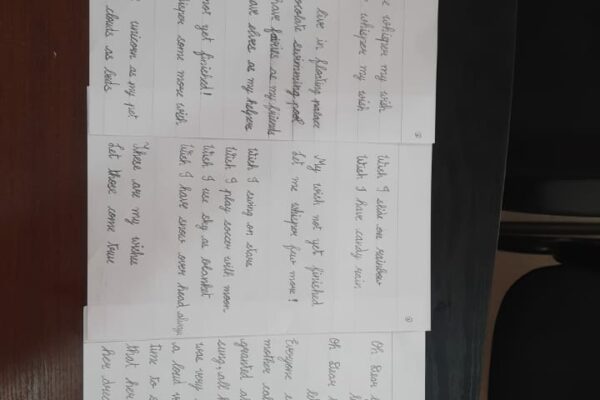 whisper my wish
whisper my wish
live in floating palace
swimming pool
have fairies as my friends
elves as my helpers
not yet finished!
some more wish.
unicorn as my pet
clouds as beds
②
Wish I slide on rainbow
Wish I have candy rain
My wish not yet finished
Let me whisper few more!
Wish I swing on stars
Wish I play soccer with moon
Wish I use sky as blanket
Wish I have snow over head always
These are my wishes
Let these come true
Oh Dear
Oh Dear
Everyone
mother
granted
sung, all
was very
a loud
time to
that her
her